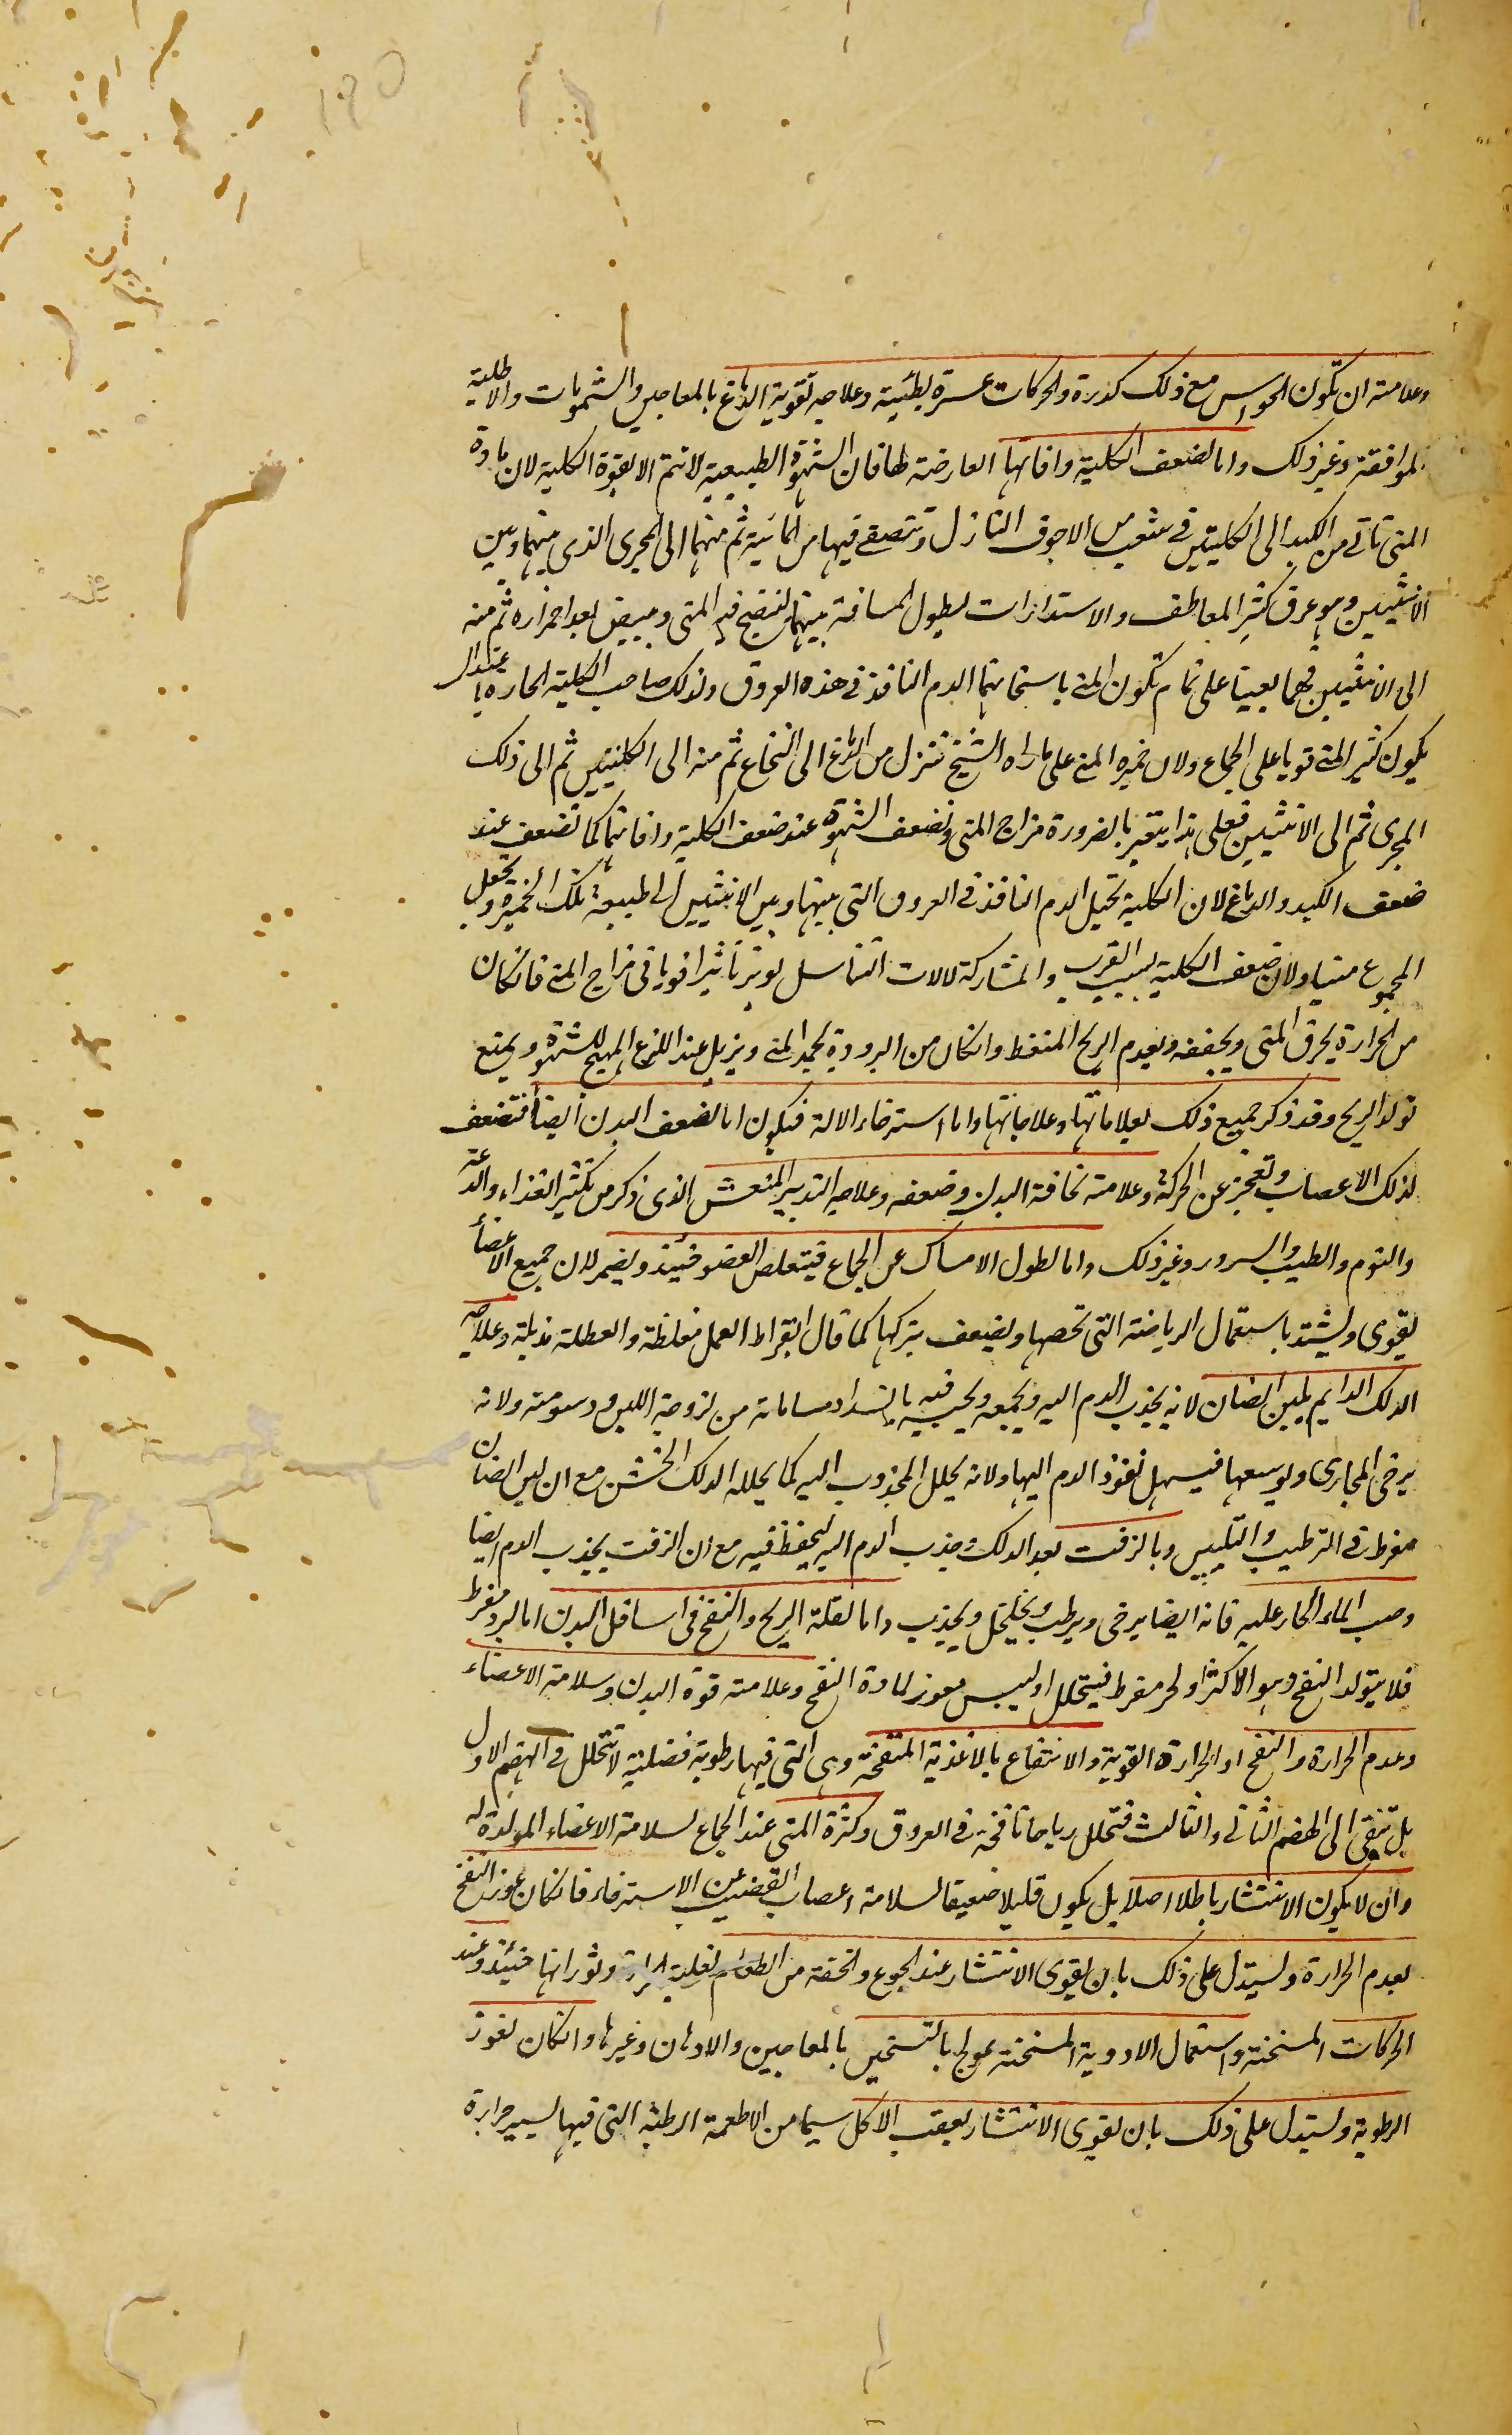 ١٩٥
وعلامته ان تكون الحواس مع ذلك كدرة والحركات عسرة بطئية وعلاجه تقوية الدماغ بالمعاجين والشمومات والاطلية
الموافقة وغير ذلك واما لضعف الكلية وافاتها العارضة لها فان الشهوة الطبيعية لا تتم الا بقوة الكلية لان مادة
المنى تاتى من الكبد الى الكليتين فى شعب من الاجوف النازل وتتصفى فيها من المائية ثم منهما الى المجرى الذى بينهما وبين
الانثيين وهو عرق كثير المعاطف والاستدارات ليطول المسافة بينهما لينضج فيه المنى ويبيض بعد احمراره ثم منه
الى الانثيين فهما يعينا على تمام تكون المنى باسخانهما الدم النافذ فى هذه العروق ولذلك صاحب الكلية الحارة باعتدال
يكون كثير المنى قويا على الجماع ولان خميرة المنى على ما راه الشيخ تنزل من الدماغ الى النخاع ثم منه الى الكليتين ثم الى ذلك
المجرى ثم الى الانثيين فعلى هذا يتغير بالضرورة مزاج المنى وتضعف الشهوة عند ضعف الكلية وافاتها كما تضعف عند
ضعف الكبد والدماغ لان الكلية تحيل الدم النافذ فى العروق التى بينها وبين الانثيين الى طبيعة تلك الخميرة وتجعل
المجموع منيا ولان ضعف الكلية بسبب القرب والمشاركة لالات التناسل يوثر تاثيرا قويا فى مزاج المنى فانكان
من الحرارة يحرق المنى ويجففه ويعدم الريح المنعظ وانكان من البرودة يجمد المنى ويزيل عنه اللذع المهيج للشهوة ويمنع
تولد الريح وقد ذكر جميع ذلك بعلاماتها وعلاجاتها واما استرخاء الالة فيكون اما لضعف البدن ايضا فتضعف
لذلك الاعصاب وتعجز عن الحركة وعلامته نحافة البدن وضعفه وعلاجه التدبير المنعش الذى ذكر من تكثير الغذاء والدعة
والنوم والطيب والسرور وغير ذلك واما لطول الامساك عن الجماع فيتقلص العضو حينئذ ويضمر لان جميع الاعضأ
يقوى ويشتد باستعمال الرياضة التى تخصها ويضعف بتركها كما قال ابقراط العمل مغلظة والعطلة مذبلة وعلاجه
الدلك الدايم بلبن الضان لانه يجذب الدم اليه ويجمعه ويحبسه فيه بانسداد مساماته من لزوجة اللبن ودسومته ولانه
يرخى المجارى ويوسعها فيسهل نفوذ الدم اليها ولانه يحلل المجذوب اليه كما يحلله الدلك الخشن مع ان لبن الضان
مفرط فى الترطيب والتليين وبالزفت بعد الدلك وجذب الدم اليه ليحفظ فيه مع ان الزفت يجذب الدم ايضا
وصب الماء الحار عليه فانه ايضا يرخى ويرطب ويخلخل ويجذب واما لقلة الريح والنفخ فى اسافل البدن اما لبرد مفرط
فلا يتولد النفخ وهو الاكثر او لحر مفرط فيتحلل او ليبس معوز لمادة النفخ وعلامته قوة البدن وسلامة الاعضاء
وعدم الحرارة والنفخ او الحرارة القوية والانتفاع بالاغذية المنفخة وهى التى فيها رطوبة فضلية لا تتحلل فى الهضم الاول
بل تبقى الى الهضم الثانى والثالث فتحلل رياحا نافخة فى العروق وكثرة المنى عند الجماع لسلامة الاعضاء المولدة له
وان لا يكون الانتشار باطلا اصلا بل يكون قليلا ضعيفا لسلامة اعصاب القضيب عن الاسترخاء فانكان عوز النفخ
بعدم الحرارة ويستدل على ذلك بان يقوى الانتشار عند الجوع والخفة من الطعام لغلبة الحرارة وثورانها حينئذ وعند
الحركات المسخنة واستعمال الادوية المسخنة عولج بالتسخين بالمعاجين والادهان وغيرها وانكان لعوز
الرطوبة ويستدل على ذلك بان يقوى الانتشار بعقب الاكل سيما من الاطعمة الرطبة التى فيها يسير حرارة